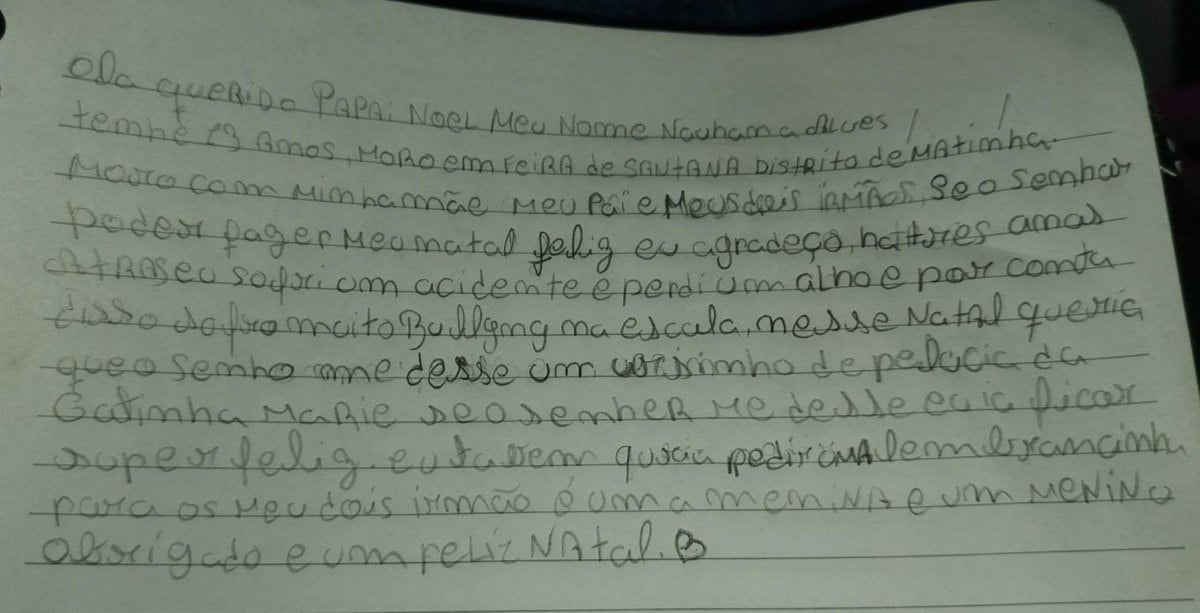 Ola querido Papai Noel Meu Nome Nauhama Alves
tenho 13 Amos, MORO em FeiRA de SANTANA DistRito de MAtinha
Mouro com Minha mãe meu pai e Meus dois iRMÃOS, Se o Senhor
poder fager Meu matal felig eu agradeço, há três amos
AtRAS eu sofri um acidemte e perdi um olho e por conta
disso sofro muito Bullging ma escola, nesse NatAl queria
que o Senho me desse um ursinho de pelucia da
Gatinha MaRie se o senheR Me desse eu ia ficar
super felig. eu tabem queria pediR UMA lembrancinha
para os Meu dois irmão é uma meniNA e um MeNiNo
obrigado e um feliz NAtal.